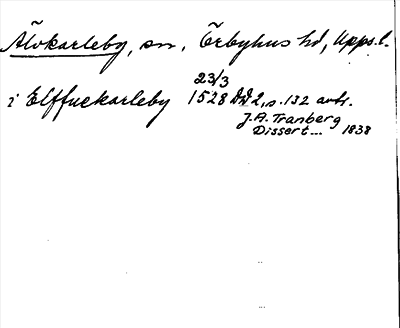 Älvkarleby, sn, Örbyhus hd, Upps. l.
23/3
i Elffuekarleby 1528 DD 2, s. 132 avtr.
J. A. Tranberg
Dissert... 1838